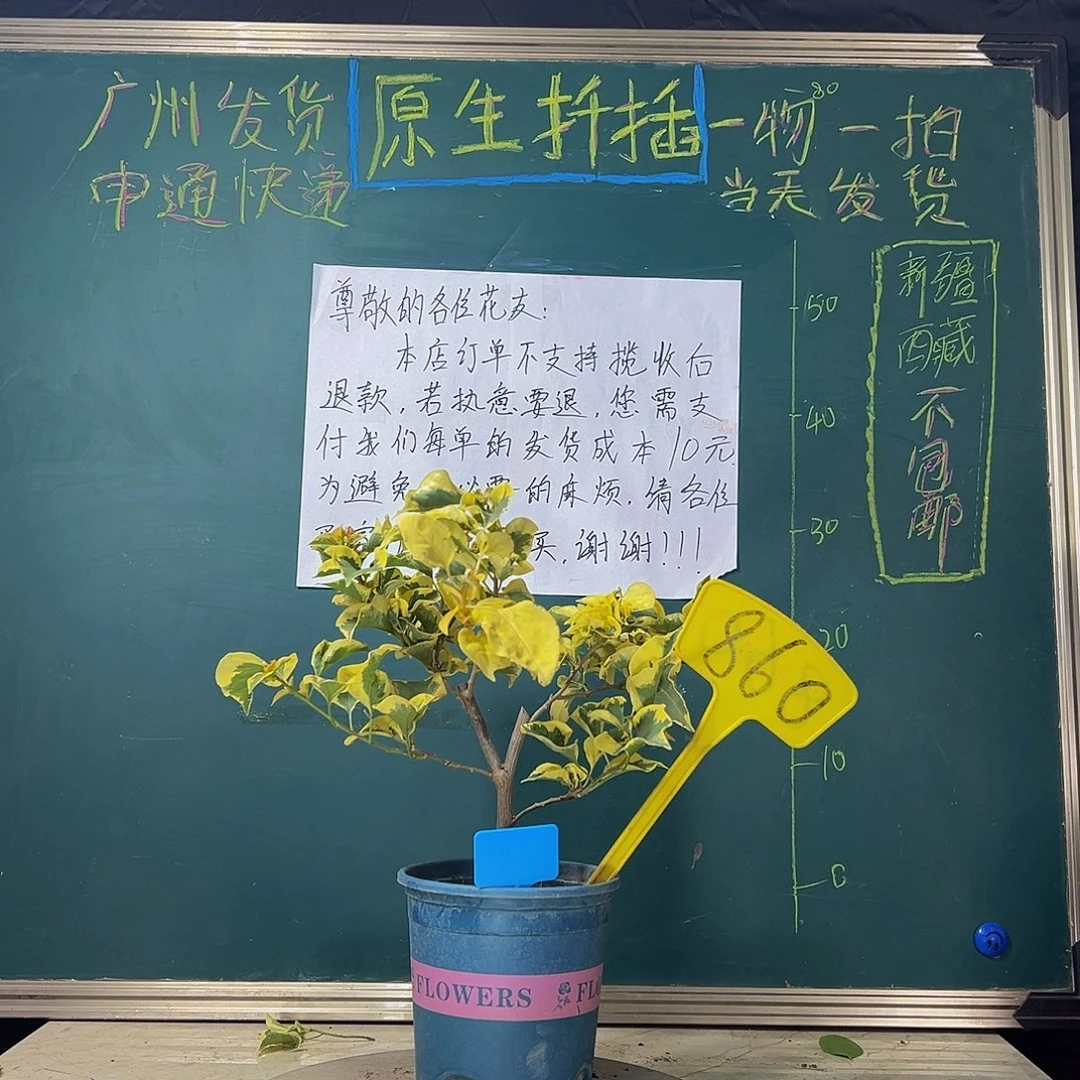 广州发货
原生扦插
一物一拍
80
申通快递
当天发货
新疆
西藏
不包邮
尊敬的各位花友:
本店订单不支持揽收后
退款,若执意要退,您需支
付我们每单的发货成本10元
为避免 的麻烦.请各位
买,谢谢!!!
50
40
30
20
10
0
860
FLOWERS
FLO